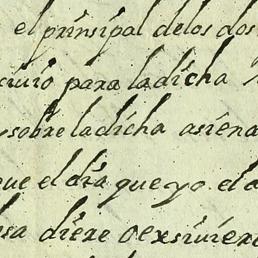 el prinsipal delos dos
para ladicha
sobre ladicha asiena
que el dia que yo el
diere o exsiviere